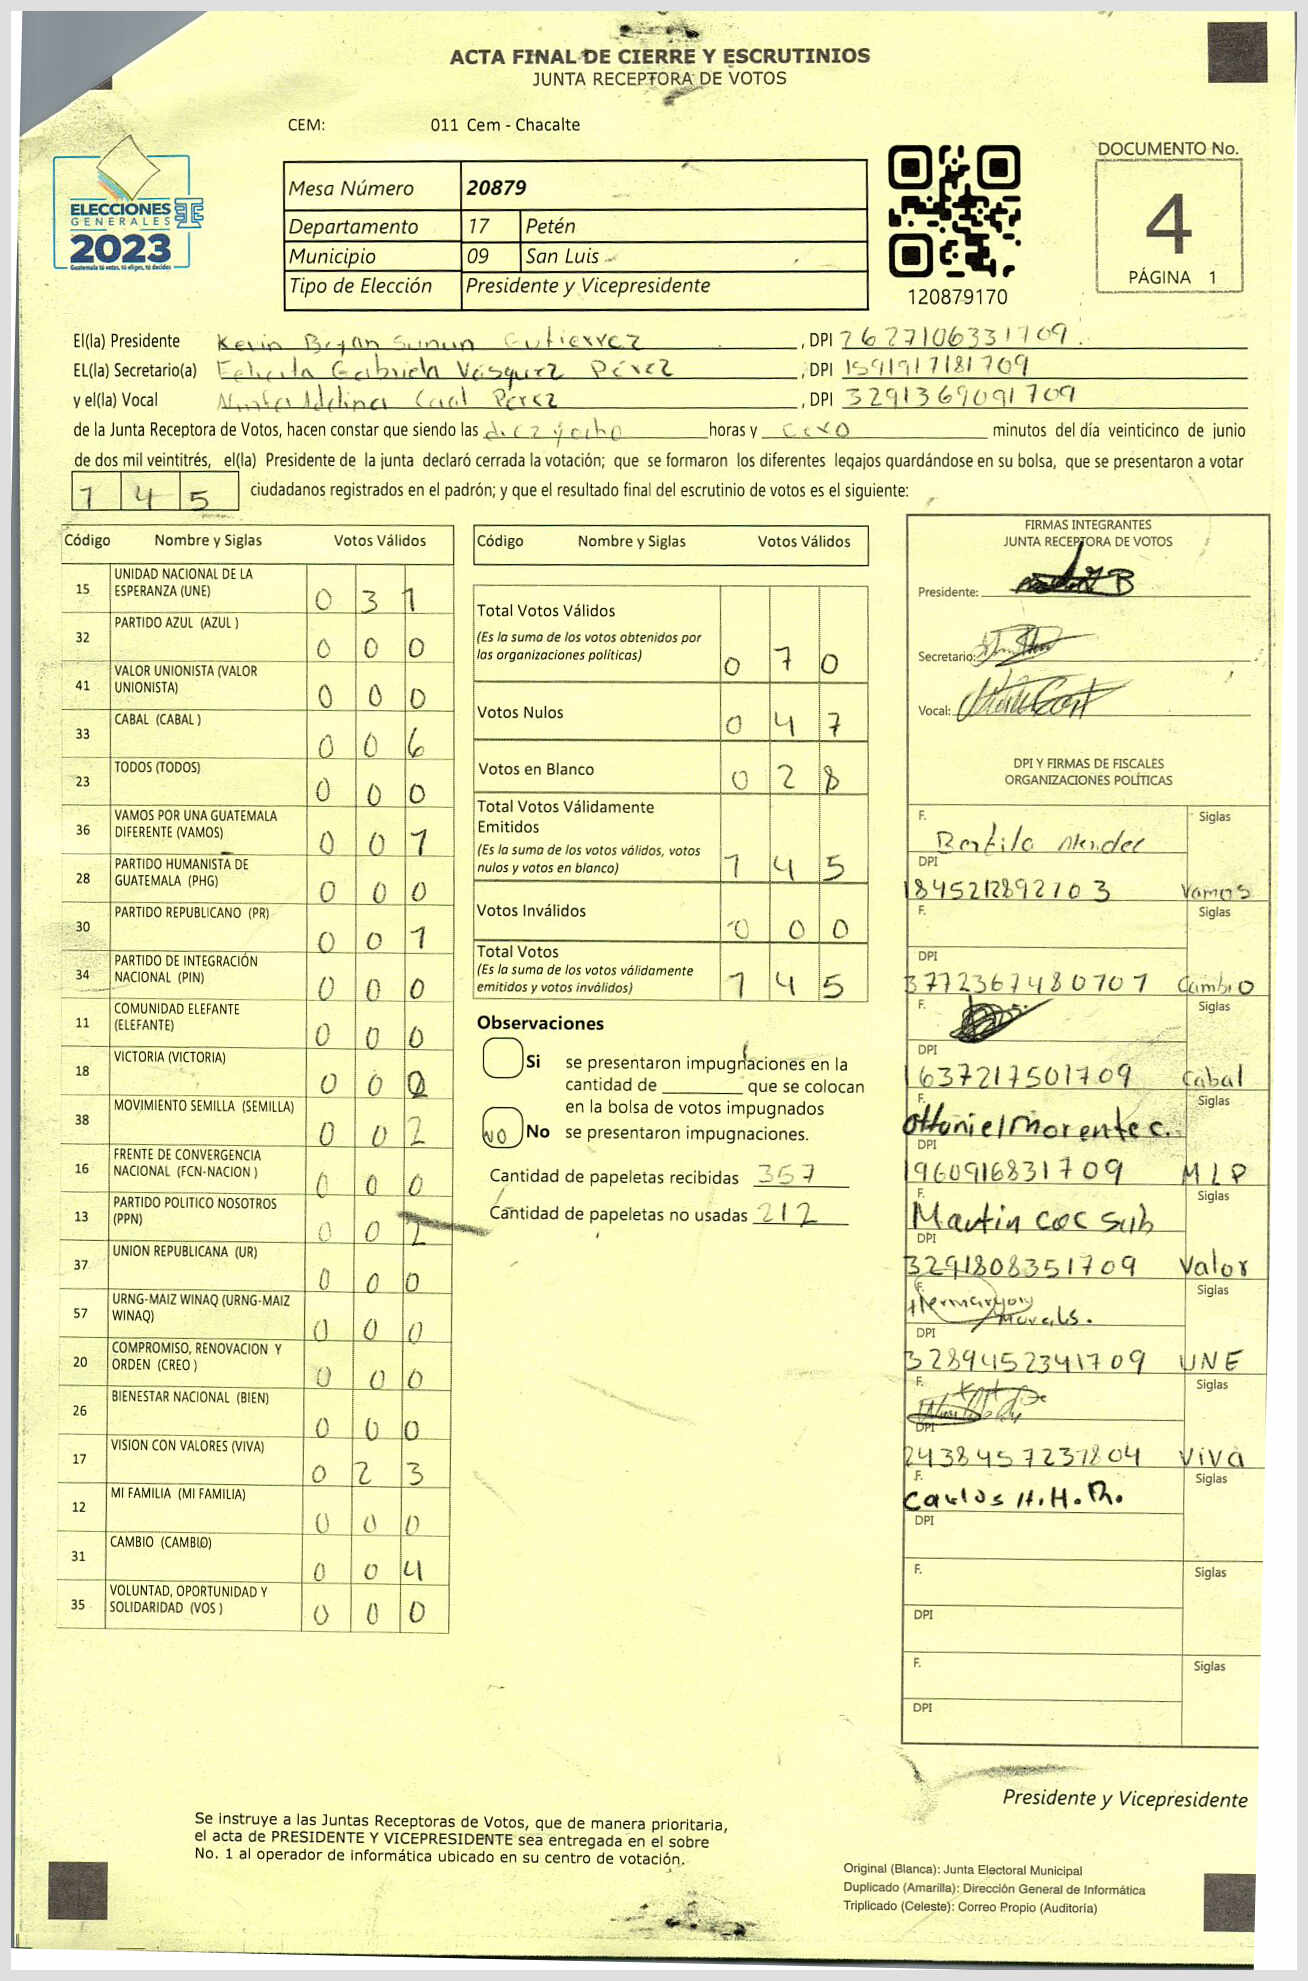 ACTA FINAL DE CIERRE Y ESCRUTINIOS
JUNTA RECEPTORA DE VOTOS
CEM: 011 Cem - Chacalte
DOCUMENTO No.
4
PÁGINA 1
ELECCIONES
GENERALES
2023
Guatemala tú votas, tú eliges, tú decides
Mesa Número 20879
Departamento 17 Petén
Municipio 09 San Luis
Tipo de Elección Presidente y Vicepresidente
120879170
El(la) Presidente Kevin Bryan Sunun Gutierrez , DPI 2627106331709
EL(la) Secretario(a) Felicita Gabriela Vásquez Pérez , DPI 1591917181709
y el(la) Vocal Adelina Caal Pérez , DPI 3291369091709
de la Junta Receptora de Votos, hacen constar que siendo las diez y ocho horas y cero minutos del día veinticinco de junio
de dos mil veintitrés, el(la) Presidente de la junta declaró cerrada la votación; que se formaron los diferentes legajos guardándose en su bolsa, que se presentaron a votar
1 4 5 ciudadanos registrados en el padrón; y que el resultado final del escrutinio de votos es el siguiente:
Código Nombre y Siglas Votos Válidos
15 UNIDAD NACIONAL DE LA ESPERANZA (UNE) 0 3 1
32 PARTIDO AZUL (AZUL ) 0 0 0
41 VALOR UNIONISTA (VALOR UNIONISTA) 0 0 0
33 CABAL (CABAL ) 0 0 6
23 TODOS (TODOS) 0 0 0
36 VAMOS POR UNA GUATEMALA DIFERENTE (VAMOS) 0 0 1
28 PARTIDO HUMANISTA DE GUATEMALA (PHG) 0 0 0
30 PARTIDO REPUBLICANO (PR) 0 0 1
34 PARTIDO DE INTEGRACIÓN NACIONAL (PIN) 0 0 0
11 COMUNIDAD ELEFANTE (ELEFANTE) 0 0 0
18 VICTORIA (VICTORIA) 0 0 0
38 MOVIMIENTO SEMILLA (SEMILLA) 0 0 2
16 FRENTE DE CONVERGENCIA NACIONAL (FCN-NACION ) 0 0 0
13 PARTIDO POLITICO NOSOTROS (PPN) 0 0 2
37 UNION REPUBLICANA (UR) 0 0 0
57 URNG-MAIZ WINAQ (URNG-MAIZ WINAQ) 0 0 0
20 COMPROMISO, RENOVACION Y ORDEN (CREO ) 0 0 0
26 BIENESTAR NACIONAL (BIEN) 0 0 0
17 VISION CON VALORES (VIVA) 0 2 3
12 MI FAMILIA (MI FAMILIA) 0 0 0
31 CAMBIO (CAMBIO) 0 0 4
35 VOLUNTAD, OPORTUNIDAD Y SOLIDARIDAD (VOS ) 0 0 0
Código Nombre y Siglas Votos Válidos
Total Votos Válidos
(Es la suma de los votos obtenidos por
las organizaciones políticas) 0 7 0
Votos Nulos 0 4 7
Votos en Blanco 0 2 8
Total Votos Válidamente
Emitidos
(Es la suma de los votos válidos, votos
nulos y votos en blanco) 1 4 5
Votos Inválidos 0 0 0
Total Votos
(Es la suma de los votos válidamente
emitidos y votos inválidos) 1 4 5
Observaciones
Si se presentaron impugnaciones en la
cantidad de ________ que se colocan
en la bolsa de votos impugnados
NO No se presentaron impugnaciones.
Cantidad de papeletas recibidas 357
Cantidad de papeletas no usadas 212
FIRMAS INTEGRANTES
JUNTA RECEPTORA DE VOTOS
Presidente:
Secretario:
Vocal:
DPI Y FIRMAS DE FISCALES
ORGANIZACIONES POLÍTICAS
F. Siglas
Bertilo Mendez
DPI
1845212892103 Vamos
F. Siglas
DPI
3772367480707 Cambio
F. Siglas
DPI
1637217501709 Cabal
F. Siglas
Othoniel Morente c.
DPI
1960916831709 MLP
F. Siglas
Martin coc sub
DPI
3291808351709 Valor
F. Siglas
Morales.
DPI
3289452341709 UNE
F. Siglas
DPI
2438457231804 VIVA
F. Siglas
Carlos H.H.
DPI
F. Siglas
DPI
F. Siglas
DPI
Presidente y Vicepresidente
Se instruye a las Juntas Receptoras de Votos, que de manera prioritaria,
el acta de PRESIDENTE Y VICEPRESIDENTE sea entregada en el sobre
No. 1 al operador de informática ubicado en su centro de votación.
Original (Blanca): Junta Electoral Municipal
Duplicado (Amarilla): Dirección General de Informática
Triplicado (Celeste): Correo Propio (Auditoría)